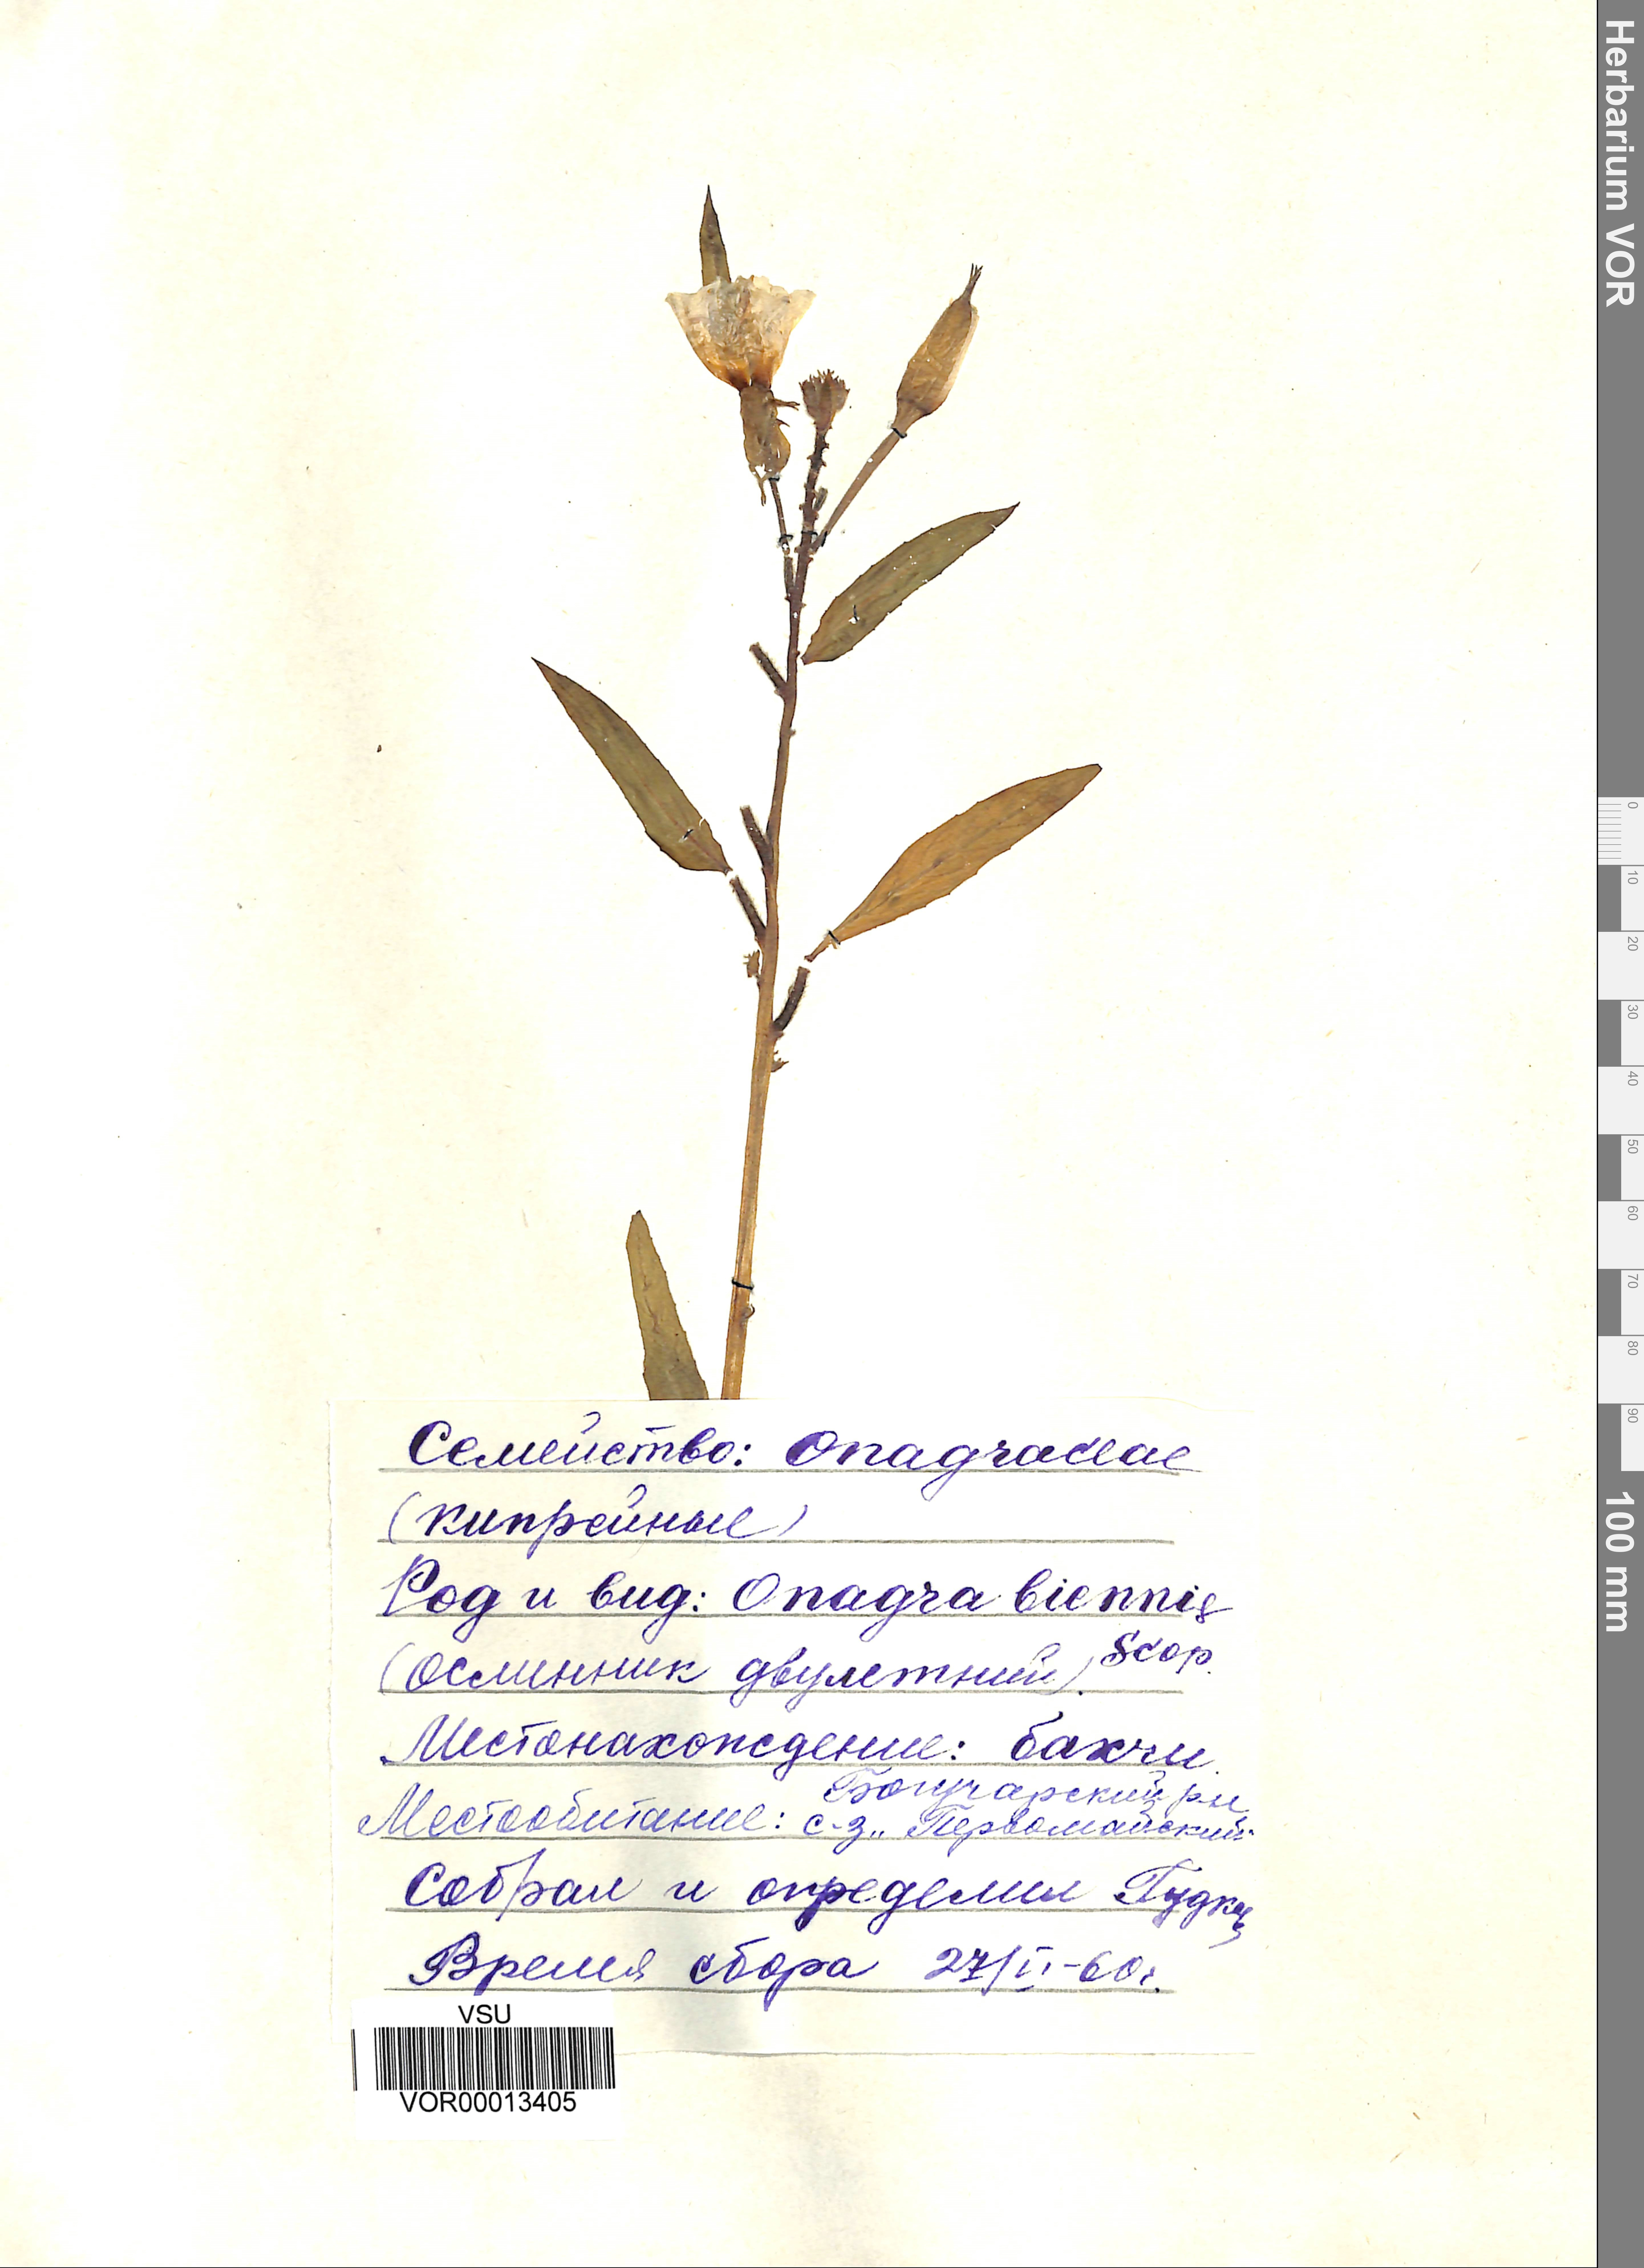 Herbarium VOR
0
10
20
30
40
50
60
70
80
90
100 mm
Семейство: Onagraceae
(кипрейные)
Род и вид: Onagra biennis
Scop.
(ослинник двулетний).
Местонахождение: бахчи
Богучарский р-н
Местообитание: с-з „Первомайский"
Собрал и определил
Время сбора
VSU
VOR00013405